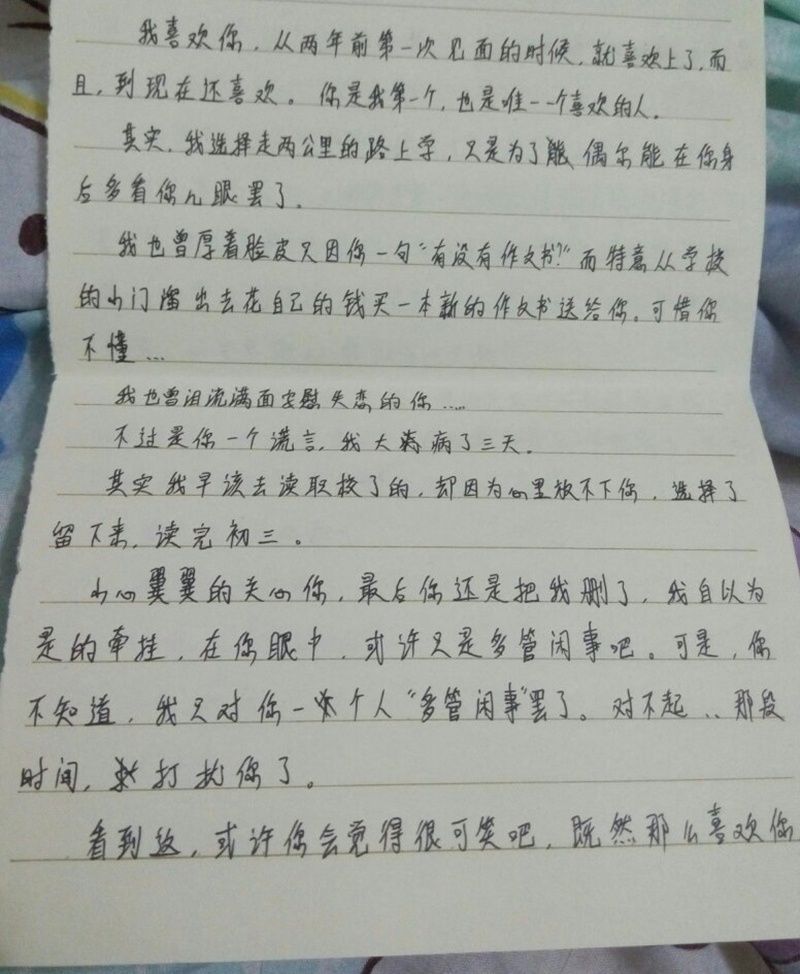 我喜欢你，从两年前第一次见面的时候，就喜欢上了，而
且，到现在还喜欢。你是我第一个，也是唯一一个喜欢的人。
其实，我选择走两公里的路上学，只是为了能偶尔能在你身
后多看你几眼罢了。
我也曾厚着脸皮只因你一句“有没有作文书？”而特意从学校
的小门溜出去花自己的钱买一本新的作文书送给你。可惜你
不懂...
我也曾泪流满面安慰失恋的你.....
不过是你一个谎言，我大病了三天。
其实我早该去读取校了的，却因为心里放不下你，选择了
留下来，读完初三。
小心翼翼的关心你，最后你还是把我删了，我自以为
是的牵挂，在你眼中，或许只是多管闲事吧。可是，你
不知道，我只对你一个人“多管闲事”罢了。对不起...那段
时间，打扰你了。
看到这，或许你会觉得很可笑吧，既然那么喜欢你